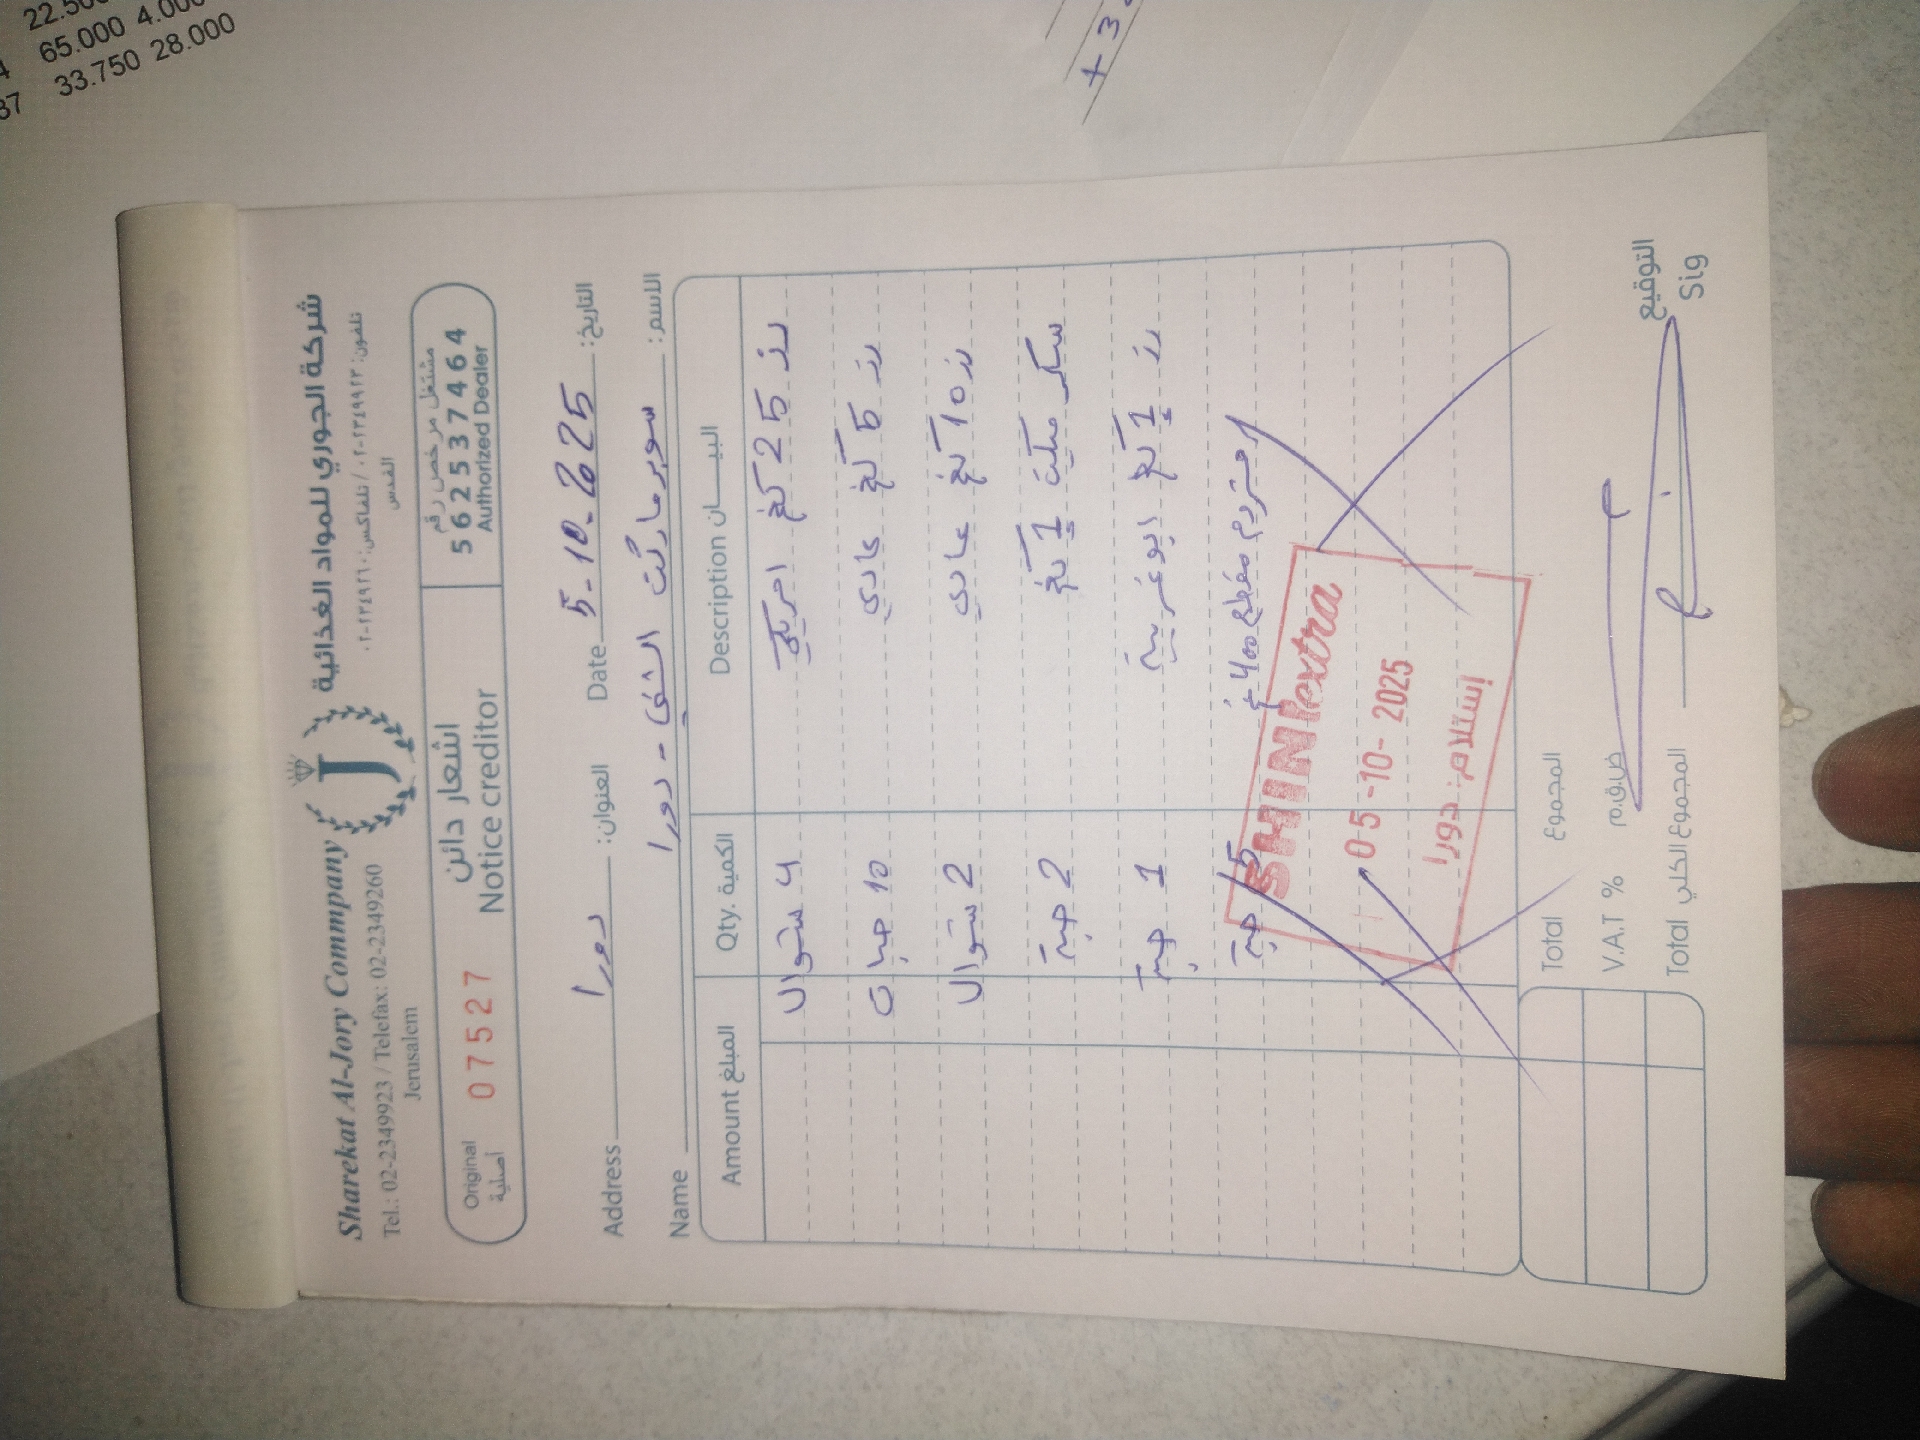 22.500
65.000 4.000
33.750 28.000
37
+ 3
Sharekat Al-Jory Commpany
شركة الجوري للمواد الغذائية
Tel.: 02-2349923 / Telefax: 02-2349260
تلفون: ٠٢-٢٣٤٩٩٢٣ / تلفاكس: ٠٢-٢٣٤٩٢٦٠
Jerusalem
القدس
Original
أصلية
07527
اشعار دائن
Notice creditor
مشتغل مرخص رقم
562537464
Authorized Dealer
Address دورا العنوان:
Date 5-10-2025 التاريخ:
Name سوبر ماركت الشني - دورا الاسم:
Amount المبلغ Qty. الكمية Description البيـــان
4 شوال رز 25 كغ امريكي
10 حبات رز 5 كغ عادي
2 شوال رز 10 كغ عادي
2 حبة سكر مكيت 1 كغ
1 حبة رز 1 كغ ابو غربية
15 حبة مقطع 400 غ
SHINI extra
05-10-2025
إستلام: دورا
Total المجموع
V.A.T % ض.ق.م
Total المجموع الكلي
التوقيع
Sig